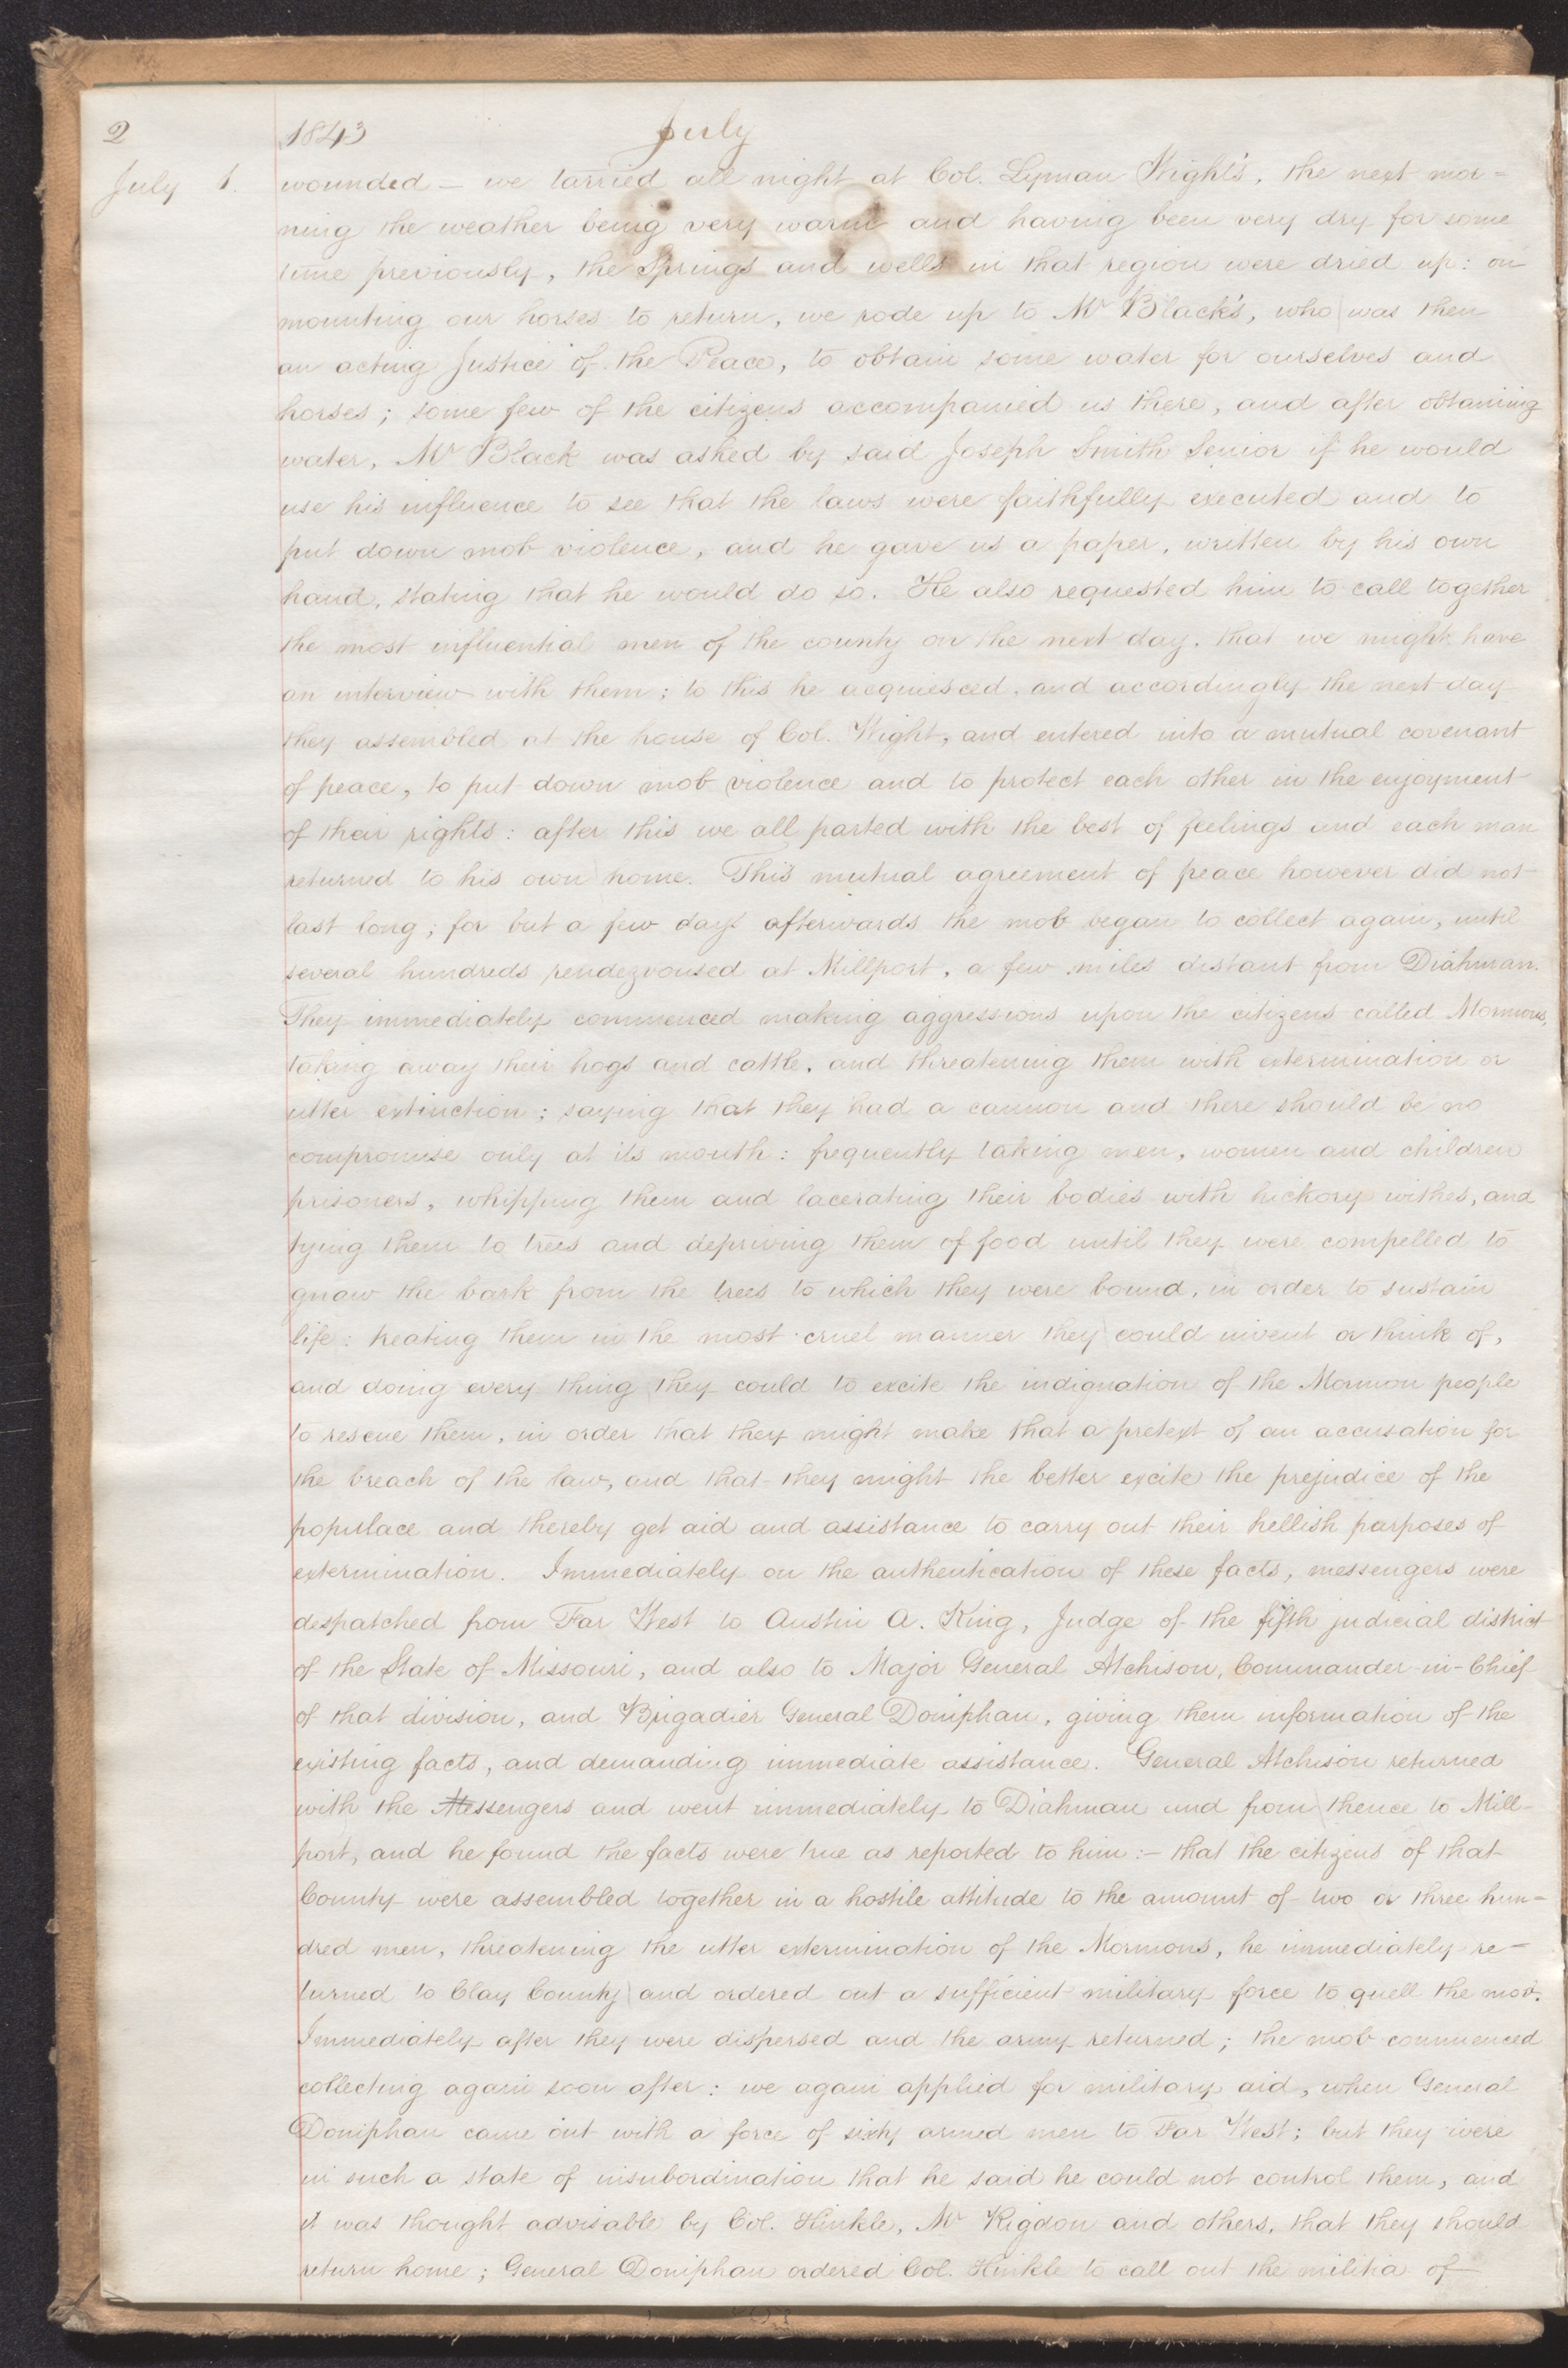 2 1843 July
July 1. wounded — we tarried all night at Col. Lyman Wight's, the next mor=
ning the weather being very warm and having been very dry for some
time previously, the Springs and wells in that region were dried up: on
mounting our horses to return, we rode up to Mr Black's, who was then
an acting Justice of the Peace, to obtain some water for ourselves and
horses; some few of the citizens accompanied us there, and after obtaining
water, Mr Black was asked by said Joseph Smith Senior if he would
use his influence to see that the laws were faithfully executed and to
put down mob violence, and he gave us a paper, written by his own
hand, stating that he would do so. He also requested him to call together
the most influential men of the county on the next day, that we might have
an interview with them; to this he acquiesced, and accordingly the next day
they assembled at the house of Col. Wight, and entered into a mutual covenant
of peace, to put down mob violence and to protect each other in the enjoyment
of their rights: after this we all parted with the best of feelings and each man
returned to his own home. This mutual agreement of peace however did not
last long; for but a few days afterwards the mob began to collect again, until
several hundreds rendezvoused at Millport, a few miles distant from Diahman.
They immediately commenced making aggressions upon the citizens called Mormons,
taking away their hogs and cattle, and threatening them with extermination or
utter extinction; saying that they had a cannon and there should be no
compromise only at its mouth: frequently taking men, women and children
prisoners, whipping them and lacerating their bodies with hickory withes, and
tying them to trees and depriving them of food until they were compelled to
gnaw the bark from the trees to which they were bound, in order to sustain
life: treating them in the most cruel manner they could invent or think of,
and doing every thing they could to excite the indignation of the Mormon people
to rescue them, in order that they might make that a pretext of an accusation for
the breach of the law, and that they might the better excite the prejudice of the
populace and thereby get aid and assistance to carry out their hellish purposes of
extermination. Immediately on the authentication of these facts, messengers were
despatched from Far West to Austin A. King, Judge of the fifth judicial district
of the State of Missouri, and also to Major General Atchison, Commander-in-Chief
of that division, and Brigadier General Doniphan, giving them information of the
existing facts, and demanding immediate assistance. General Atchison returned
with the Messengers and went immediately to Diahman and from thence to Mill-
port, and he found the facts were true as reported to him:— that the citizens of that
County were assembled together in a hostile attitude to the amount of two or three hun=
dred men, threatening the utter extermination of the Mormons, he immediately re=
turned to Clay County and ordered out a sufficient military force to quell the mob.
Immediately after they were dispersed and the army returned; the mob commenced
collecting again soon after: we again applied for military aid, when General
Doniphan came out with a force of sixty armed men to Far West; but they were
in such a state of insubordination that he said he could not control them, and
it was thought advisable by Col. Hinkle, Mr Rigdon and others, that they should
return home; General Doniphan ordered Col. Hinkle to call out the militia of